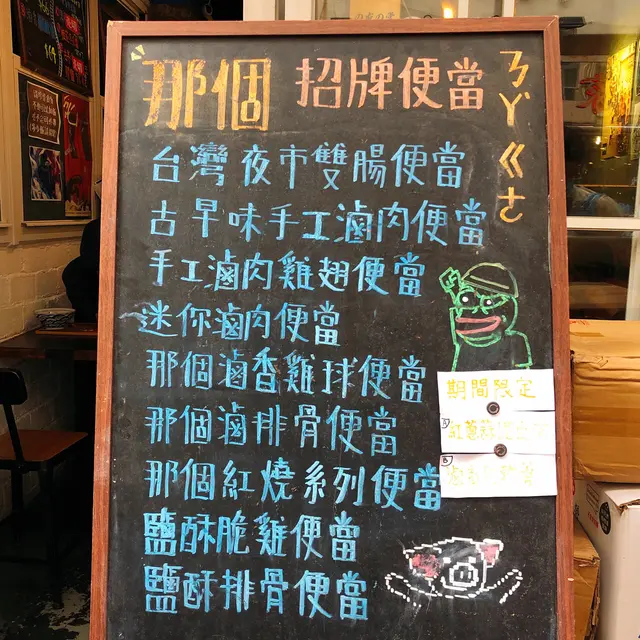 那個 招牌便當
ㄋㄚㄍㄜ
台灣夜市雙腸便當
古早味手工滷肉便當
手工滷肉雞翅便當
迷你滷肉便當
那個滷香雞球便當
那個滷排骨便當
那個紅燒系列便當
鹽酥脆雞便當
鹽酥排骨便當
期間限定